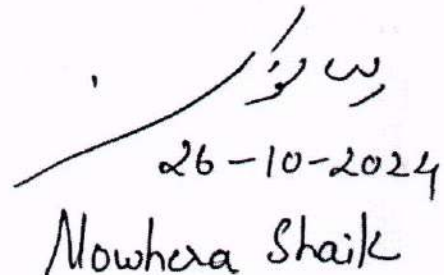 26-10-2024
Nowhera Shaik